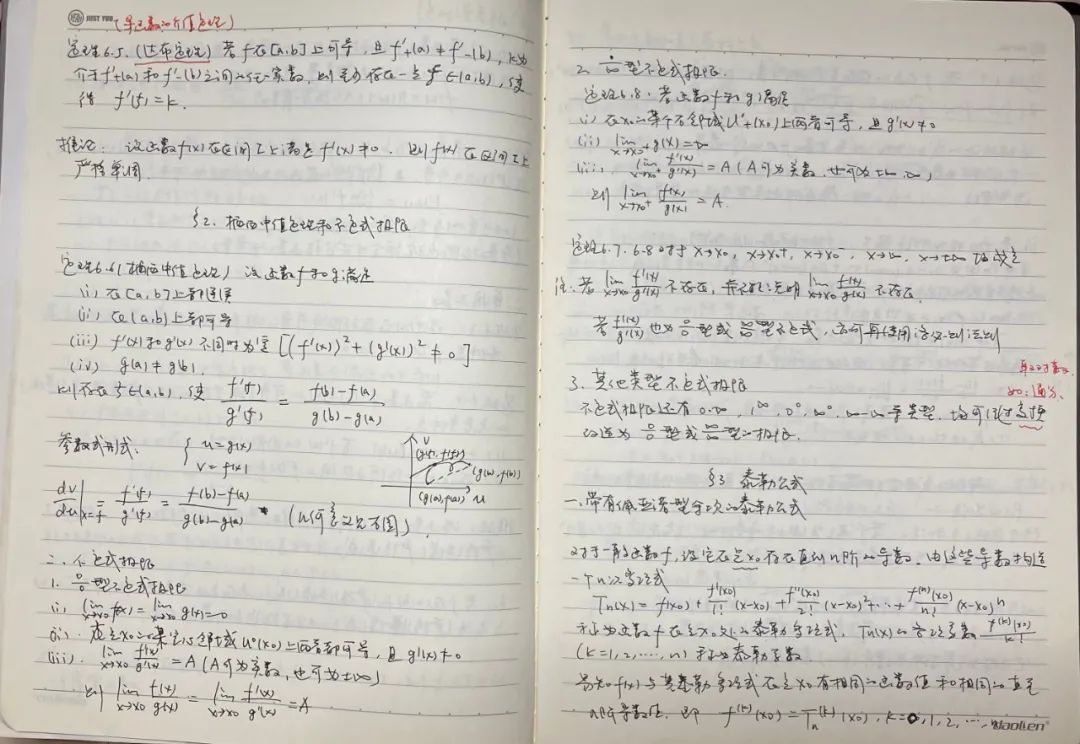 JUST YOU (导函数的介值定理)
定理6.5. (达布定理) 若f在[a,b]上可导, 且f'+(a)≠f'-(b), k为
介于f'+(a)和f'-(b)之间的任一实数, 则至少存在一点ξ∈(a,b), 使
得 f'(ξ)=k.
推论. 设函数f(x)在区间I上满足f'(x)≠0. 则f(x)在区间I上
严格单调.
§2. 柯西中值定理和不定式极限
定理6.6(柯西中值定理) 设函数f和g满足
(i) 在[a,b]上都连续
(ii) 在(a,b)上都可导
(iii) f'(x)和g'(x)不同时为零 [(f'(x))²+(g'(x))²≠0]
(iv) g(a)≠g(b).
则存在ξ∈(a,b), 使 f'(ξ)/g'(ξ) = (f(b)-f(a))/(g(b)-g(a))
参数式形式. { u=g(x)
v=f(x)
v (g(ξ), f(ξ)) (g(b), f(b)) (g(a),f(a)) u
dv/du|x=ξ = f'(ξ)/g'(ξ) = (f(b)-f(a))/(g(b)-g(a)) (几何意义见右图).
二. 不定式极限
1. 0/0型不定式极限
(i) lim x→x0 f(x) = lim x→x0 g(x)=0
(ii). 在点x0的某空心邻域U°(x0)上两者都可导, 且g'(x)≠0
(iii). lim x→x0 f'(x)/g'(x) = A (A可为实数, 也可为±∞)
则 lim x→x0 f(x)/g(x) = lim x→x0 f'(x)/g'(x) = A
2. 型不定式极限.
定理6.8. 若函数f和g满足
(i) 在x0的某个右邻域U°+(x0)上两者可导, 且g'(x)≠0
(ii) lim x→x0+ g(x)=∞
(iii). lim x→x0+ f'(x)/g'(x) = A (A可为实数, 也可为±∞, ∞)
则 lim x→x0+ f(x)/g(x) = A.
定理6.7, 6.8对于x→x0, x→x0+, x→x0-, x→∞, x→±∞均成立
注. 若 lim x→x0 f'(x)/g'(x) 不存在, 并不能说明 lim x→x0 f(x)/g(x) 不存在.
若 f'(x)/g'(x) 也为0/0型或∞/∞型不定式, 亦可再使用洛必达法则
3. 其他类型不定式极限
取对数.
如: 通分、
不定式极限还有0·∞, 1^∞, 0^0, ∞^0, ∞-∞等类型. 均可经过变换
改造为0/0型或∞/∞型的极限.
§3 泰勒公式
一. 带有佩亚诺型余项的泰勒公式
对于一般函数f, 设它在点x0存在直到n阶的导数. 由这些导数构造
一个n次多项式
Tn(x) = f(x0) + f'(x0)/1! (x-x0) + f''(x0)/2! (x-x0)² + ... + f^(n)(x0)/n! (x-x0)^n
称为函数f在点x0处的泰勒多项式, Tn(x)的各项系数 f^(k)(x0)/k!
(k=1,2,...,n) 称为泰勒系数.
易知f(x)与其泰勒多项式在点x0有相同的函数值和相同的直至
n阶导数值, 即 f^(k)(x0)=Tn^(k)(x0), k=0,1,2,...,